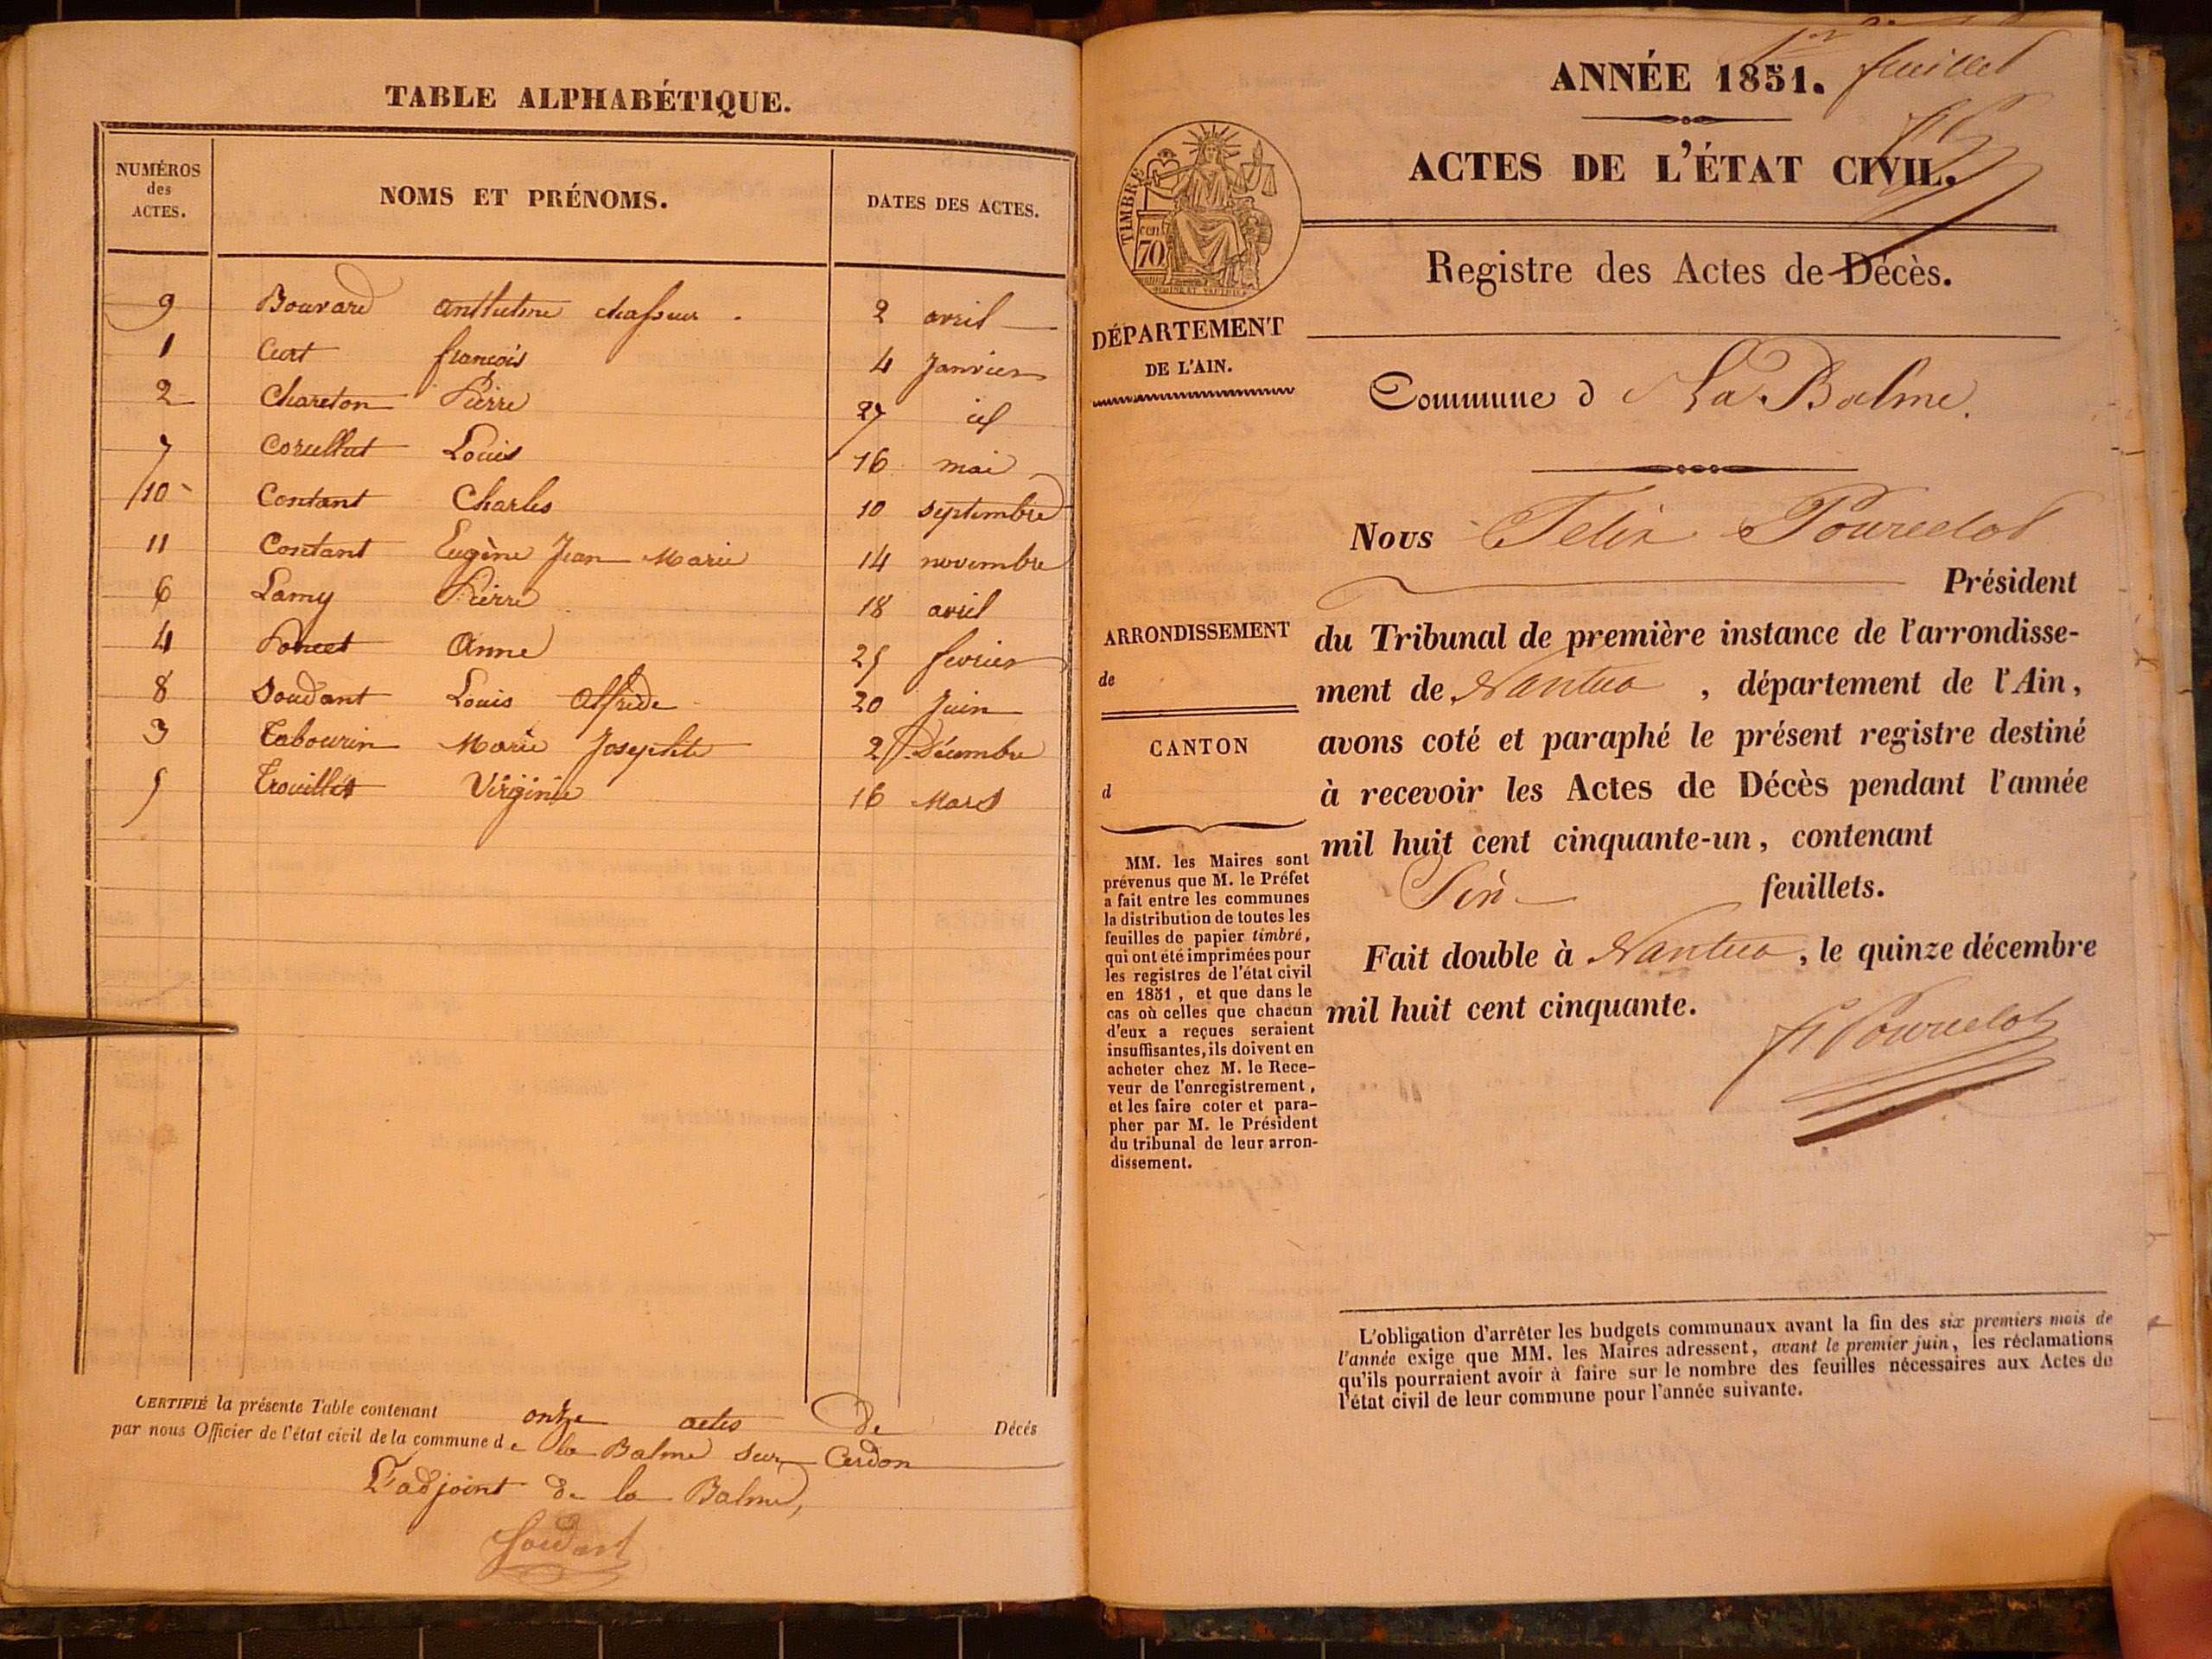 TABLE ALPHABÉTIQUE.
NUMÉROS des ACTES. NOMS ET PRÉNOMS. DATES DES ACTES.
9 Bouvard Anthelme chasseur. 2 avril
1 Curt françois 4 Janvier
2 Chareton Pierre 27 id
7 Louis 16 mai
10 Contant Charles 10 septembre
11 Contant Eugène Jean Marie 14 novembre
6 Lamy Pierre 18 avril
4 Poncet Anne 25 fevrier
8 Soudant Louis Alfrede 20 Juin
3 Tabourin Marie Josephte 2 Décembre
5 Virginie 16 Mars
CERTIFIÉ la présente Table contenant onze actes de Décés
par nous Officier de l'état civil de la commune de la Balme sur Cerdon
L'adjoint de la Balme,
Soudant
1er feuillet
ANNÉE 1851.
ACTES DE L'ÉTAT CIVIL.
Registre des Actes de Décès.
TIMBRE
cent
70
DÉPARTEMENT
DE L'AIN.
Commune d La Balme.
Nous Felix Pourcelot
Président
du Tribunal de première instance de l'arrondisse-
ment de Nantua, département de l'Ain,
avons coté et paraphé le présent registre destiné
à recevoir les Actes de Décès pendant l'année
mil huit cent cinquante-un, contenant
feuillets.
Fait double à Nantua, le quinze décembre
mil huit cent cinquante.
Pourcelot
ARRONDISSEMENT
de
CANTON
d
MM. les Maires sont
prévenus que M. le Préfet
a fait entre les communes
la distribution de toutes les
feuilles de papier timbré,
qui ont été imprimées pour
les registres de l'état civil
en 1851, et que dans le
cas où celles que chacun
d'eux a reçues seraient
insuffisantes, ils doivent en
acheter chez M. le Rece-
veur de l'enregistrement,
et les faire coter et para-
pher par M. le Président
du tribunal de leur arron-
dissement.
L'obligation d'arrêter les budgets communaux avant la fin des six premiers mois de
l'année exige que MM. les Maires adressent, avant le premier juin, les réclamations
qu'ils pourraient avoir à faire sur le nombre des feuilles nécessaires aux Actes de
l'état civil de leur commune pour l'année suivante.